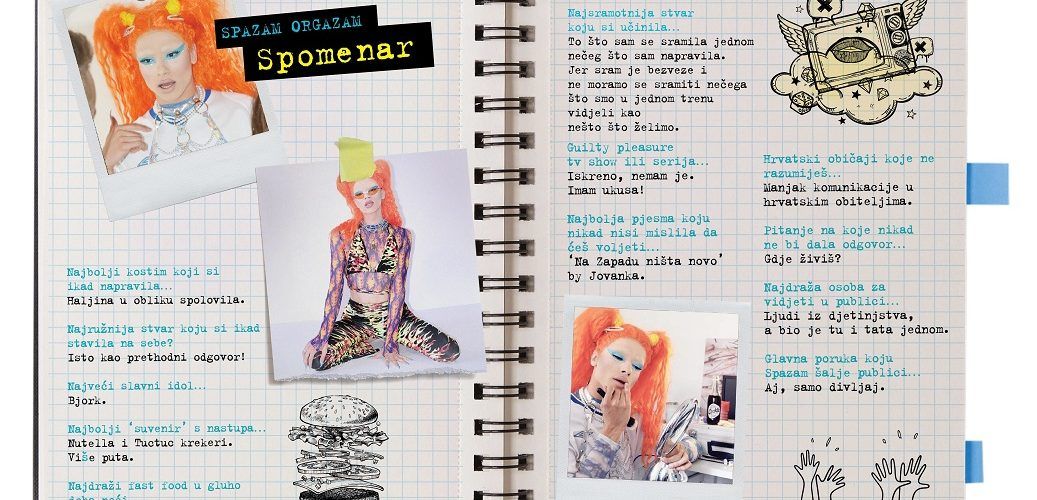 SPAZAM ORGAZAM
Spomenar
Najbolji kostim koji si
ikad napravila...
Haljina u obliku spolovila.
Najružnija stvar koju si ikad
stavila na sebe?
Isto kao prethodni odgovor!
Najveći slavni idol...
Bjork.
Najbolji 'suvenir' s nastupa...
Nutella i Tuctuc krekeri.
Više puta.
Najdraži fast food u gluho
doba noći
Najsramotnija stvar
koju si učinila...
To što sam se sramila jednom
nečeg što sam napravila.
Jer sram je bezveze i
ne moramo se sramiti nečega
što smo u jednom trenu
vidjeli kao
nešto što želimo.
Guilty pleasure
tv show ili serija...
Iskreno, nemam je.
Imam ukusa!
Najbolja pjesma koju
nikad nisi mislila da
ćeš voljeti...
'Na Zapadu ništa novo'
by Jovanka.
Hrvatski običaji koje ne
razumiješ...
Manjak komunikacije u
hrvatskim obiteljima.
Pitanje na koje nikad
ne bi dala odgovor...
Gdje živiš?
Najdraža osoba za
vidjeti u publici...
Ljudi iz djetinjstva,
a bio je tu i tata jednom.
Glavna poruka koju
Spazam šalje publici...
Aj, samo divljaj.